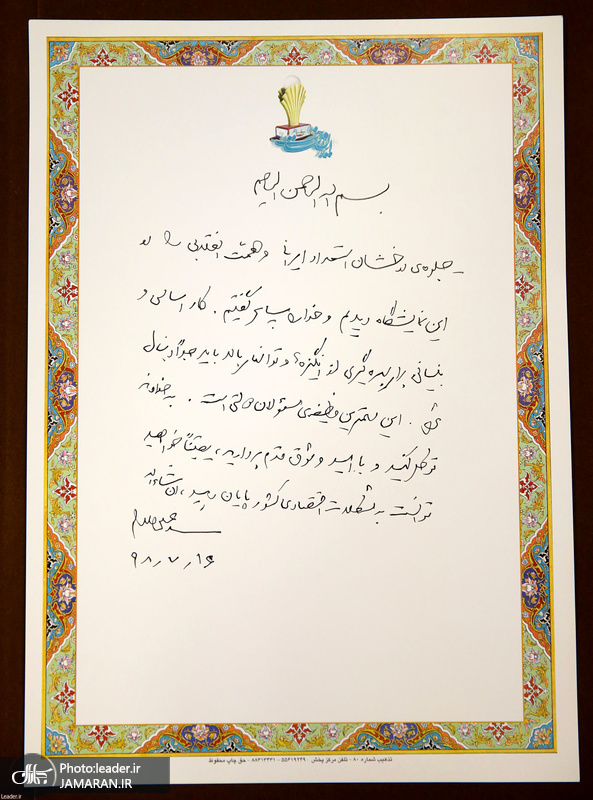 بسم الله الرحمن الرحیم
جلوه‌ی درخشان استعداد ایرانی و همّت انقلابی را در
این نمایشگاه دیدم و خدا را سپاس گفتم. کار اساسی و
بنیانی برای بهره‌گیری از انگیزه‌ها و توانها باید بجدّ دنبال
شود. این مهمترین وظیفه‌ی مسئولان دولتی است. به خداوند
توکل کنید و با امید و شوق قدم بردارید، یقیناً خواهید
توانست به مشکلات اقتصادی کشور پایان دهید، ان‌شاءالله
سید علی خامنه‌ای
۹۸٫۷٫۱۶
تذهیب شماره ۸۰ - تلفن مرکز پخش: ۵۵۶۱۹۲۲۹ - ۸۸۴۱۳۴۲۱ - حق چاپ محفوظ
جماران
Photo:leader.ir
JAMARAN.IR
Leader.ir